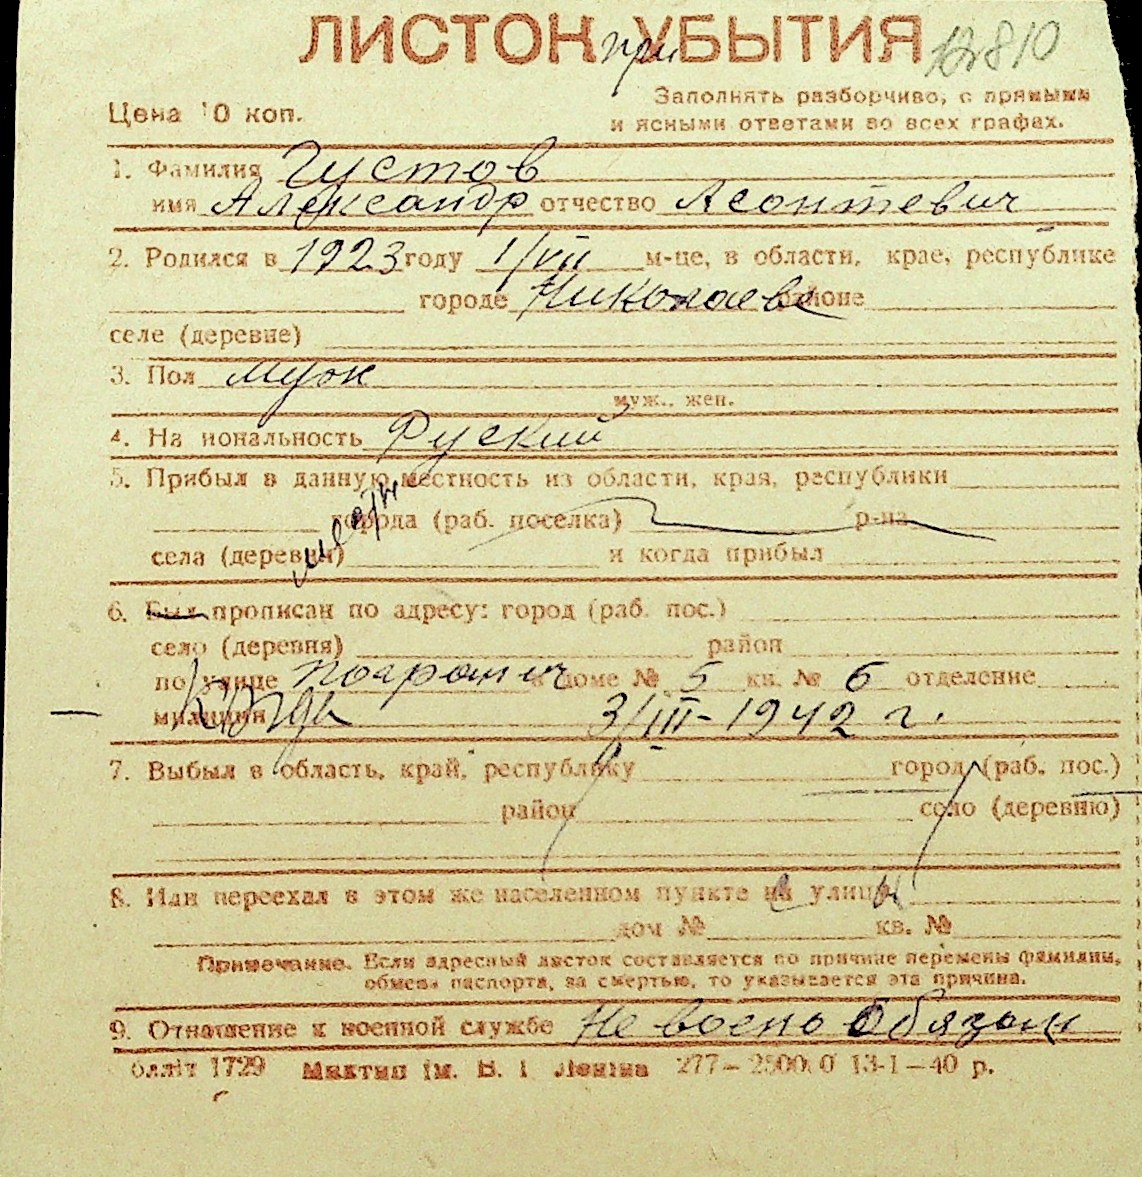 ЛИСТОК при УБЫТИЯ 12810
Цена 10 коп.
Заполнять разборчиво, с прямыми
и ясными ответами во всех графах.
1. Фамилия Густов
имя Александр отчество Леонтевич
2. Родился в 1923 году 1/VII м-це, в области, крае, республике
городе Николаеве районе
селе (деревне)
3. Пол муж
муж., жен.
4. На иональность Руский
5. Прибыл в данную местность из области, края, республики
города (раб. поселка) р-на
села (деревни) и когда прибыл
6. Был прописан по адресу: город (раб. пос.)
село (деревня) район
по улице погранич в доме № 5 кв. № 6 отделение
милиции Когда 3/III-1942 г.
7. Выбыл в область, край, республику город (раб. пос.)
район село (деревню)
8. Или переехал в этом же населенном пункте на улицу
дом № кв. №
Примечание. Если адресный листок составляется по причине перемены фамилии,
обмена паспорта, за смертью, то указывается эта причина.
9. Отношение к военной службе Не воено обязан
блліт 1729 Миктип ім. В. І. Леніна 277–2500.0 13-1–40 р.